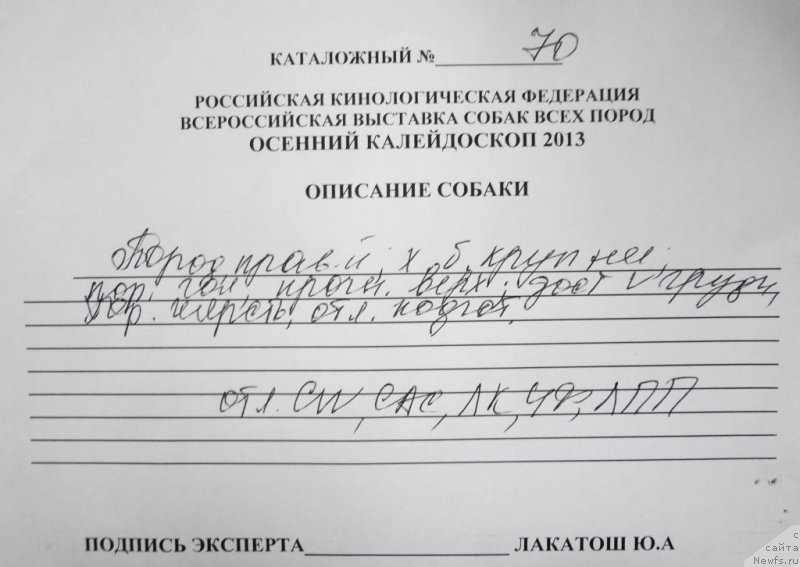 КАТАЛОЖНЫЙ № 70
РОССИЙСКАЯ КИНОЛОГИЧЕСКАЯ ФЕДЕРАЦИЯ
ВСЕРОССИЙСКАЯ ВЫСТАВКА СОБАК ВСЕХ ПОРОД
ОСЕННИЙ КАЛЕЙДОСКОП 2013
ОПИСАНИЕ СОБАКИ
Пород, прав-й, х б. крупней,
пор. гол, прочн. верх, дост V груди,
хор. шерсть, отл. подгот.
отл. CW, CAC, ЛК, ЧФ, ЛПП
ПОДПИСЬ ЭКСПЕРТА ЛАКАТОШ Ю.А
с
сайта
Newfs.ru